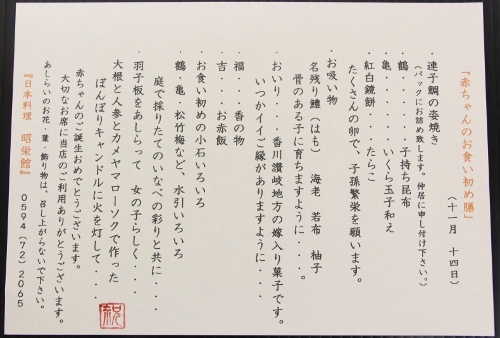 「赤ちゃんのお食い初め膳」
（十一月　十四日）
・連子鯛の姿焼き
（パックにお詰め致します。仲居に申し付け下さい。）
・鶴・・・・・・子持ち昆布
・亀・・・・・・いくら玉子和え
・紅白鏡餅・・・・たらこ
たくさんの卵で、子孫繁栄を願います。
・お吸い物
名残り鱧（はも）　海老　若布　柚子
骨のある子に育ちますように・・・・。
・おいり・・・香川讃岐地方の嫁入り菓子です。
いつかイイご縁がありますように・・・・
・吉・・・お赤飯
・福・・・香の物
・お食い初めの小石いろいろ
・鶴・亀・松竹梅など、水引いろいろ
庭で採りたてのいなべの彩りと共に・・・
・羽子板をあしらって　女の子らしく・・・・
大根と人参とカメヤマローソクで作った
ぼんぼりキャンドルに火を灯して・・・・
赤ちゃんのご誕生おめでとうございます。
大切なお席に当店のご利用ありがとうございます。
あしらいのお花・葉・飾り物は、召し上がらないで下さい。
『日本料理　昭栄館』　0594（72）2065